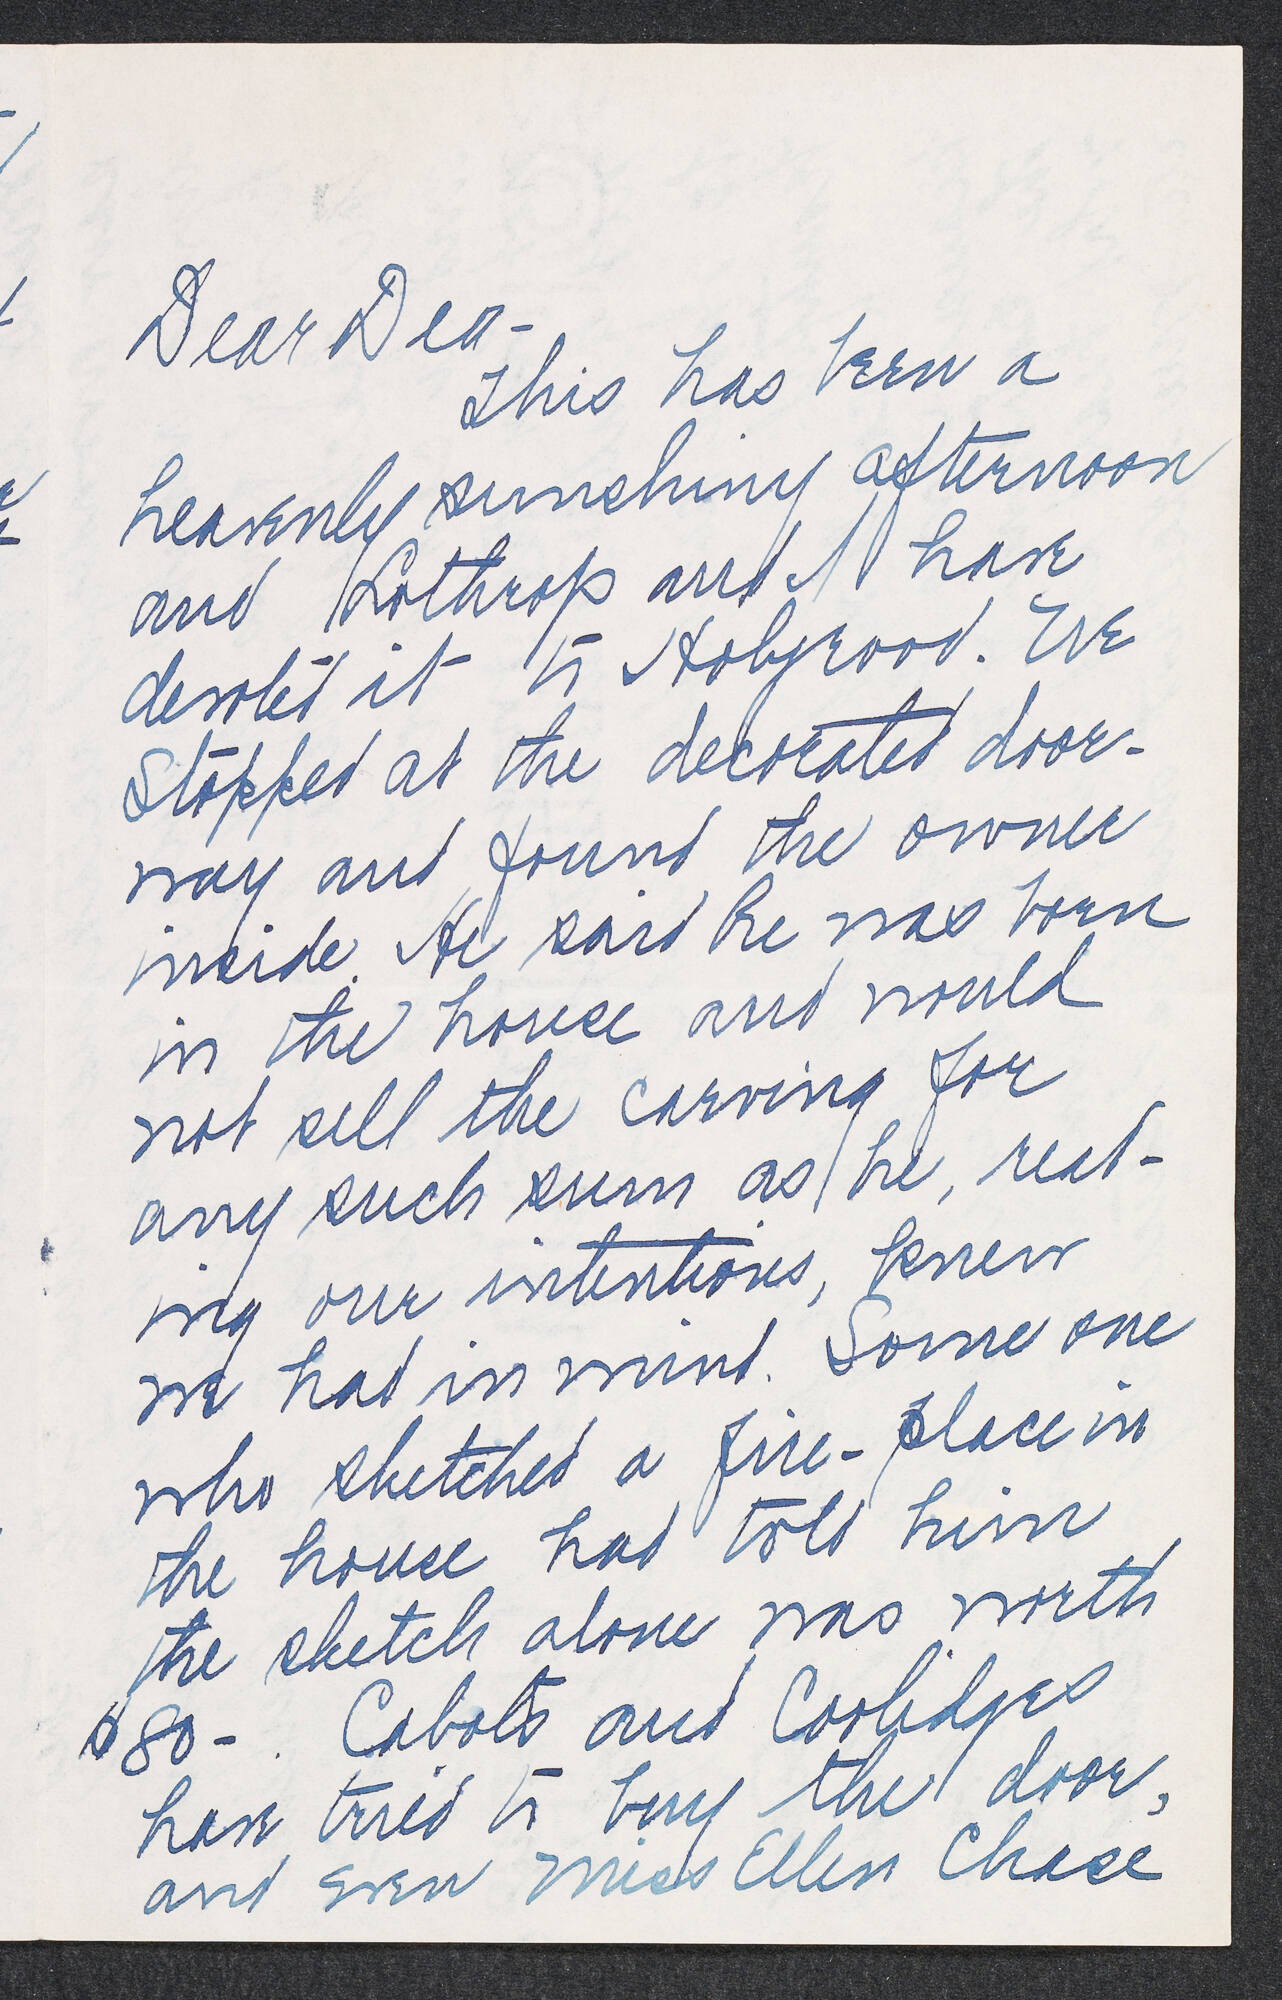 Dear Dea-
This has been a
heavenly sunshiny afternoon
and Lothrop and I have
devoted it to Hobgood. We
Stopped at the decorated door-
way and found the owner
inside. He said he was born
in the house and would
not sell the carving for
any such sum as he, read-
ing our intentions, knew
we had in mind. Some one
who sketched a fire-place in
the house had told him
the sketch alone was worth
$80-. Cabots and Coolidges
have tried to buy the door,
and even Miss Ellen Chase